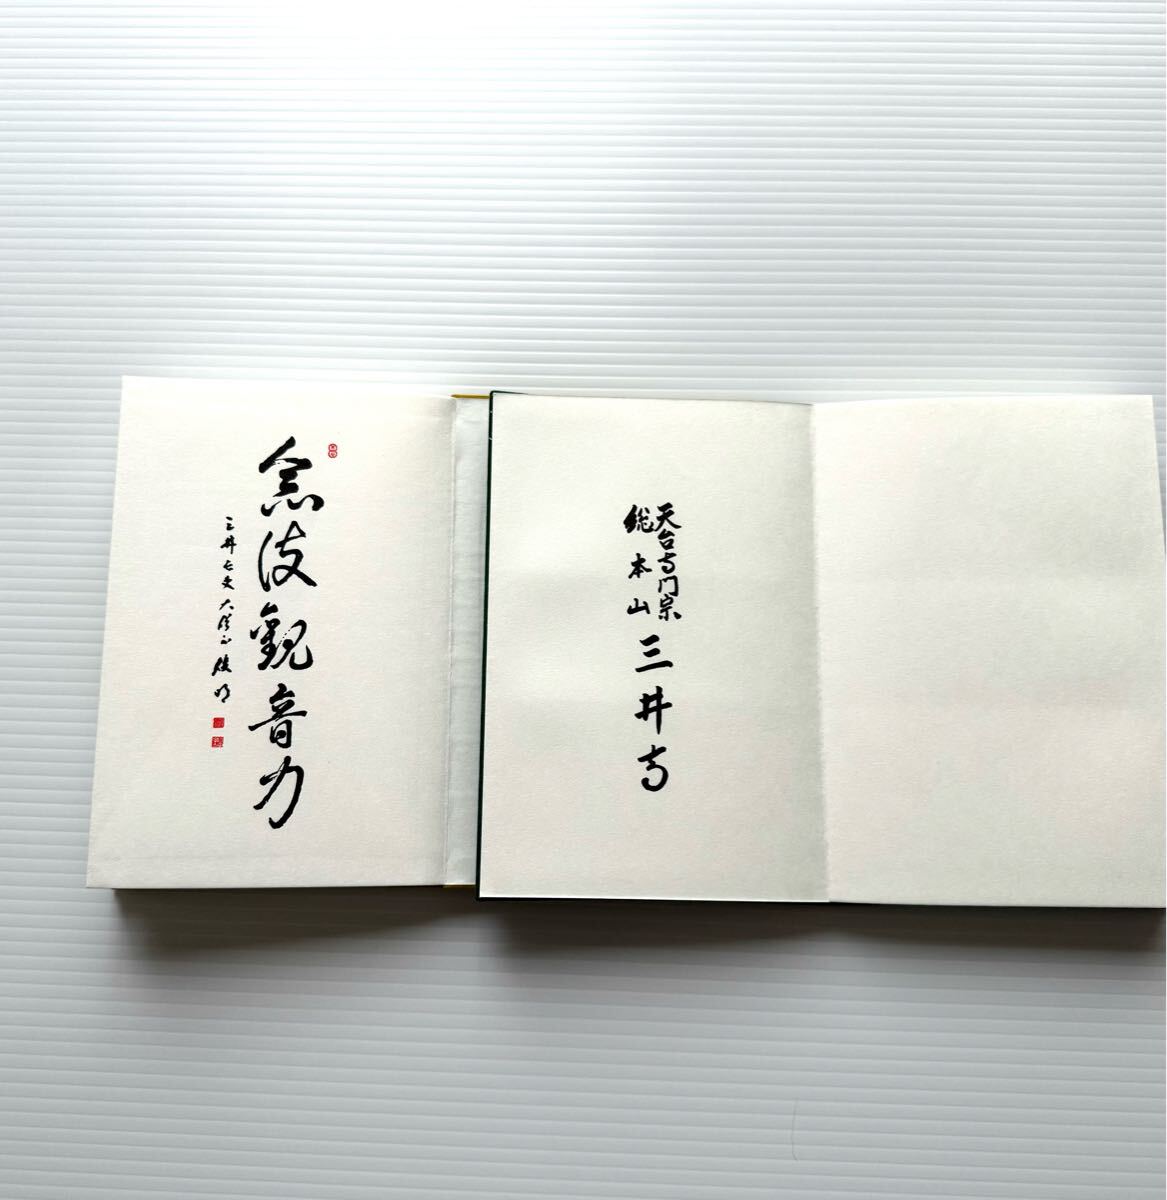 念彼觀音力
三井長吏 大僧正 俊明
天台寺門宗
総本山 三井寺